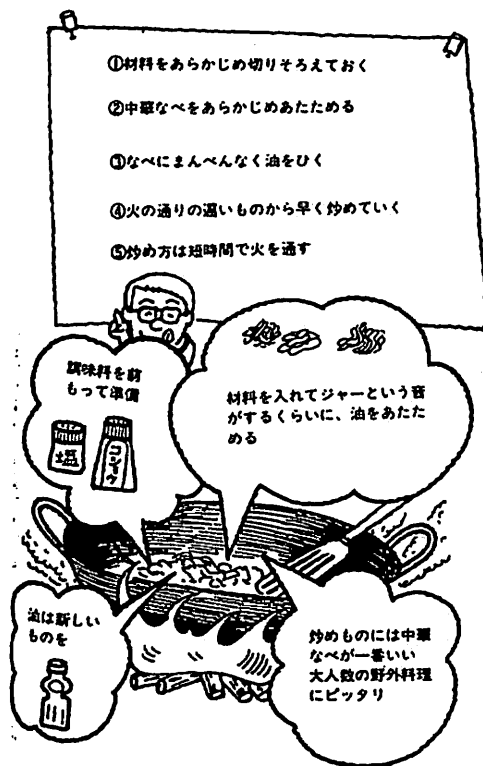 ①材料をあらかじめ切りそろえておく
②中華なべをあらかじめあたためる
③なべにまんべんなく油をひく
④火の通りの遅いものから早く炒めていく
⑤炒め方は短時間で火を通す
調味料を前
もって準備
塩
コショウ
材料を入れてジャーという音
がするくらいに、油をあたた
める
油は新しい
ものを
炒めものには中華
なべが一番いい
大人数の野外料理
にピッタリ